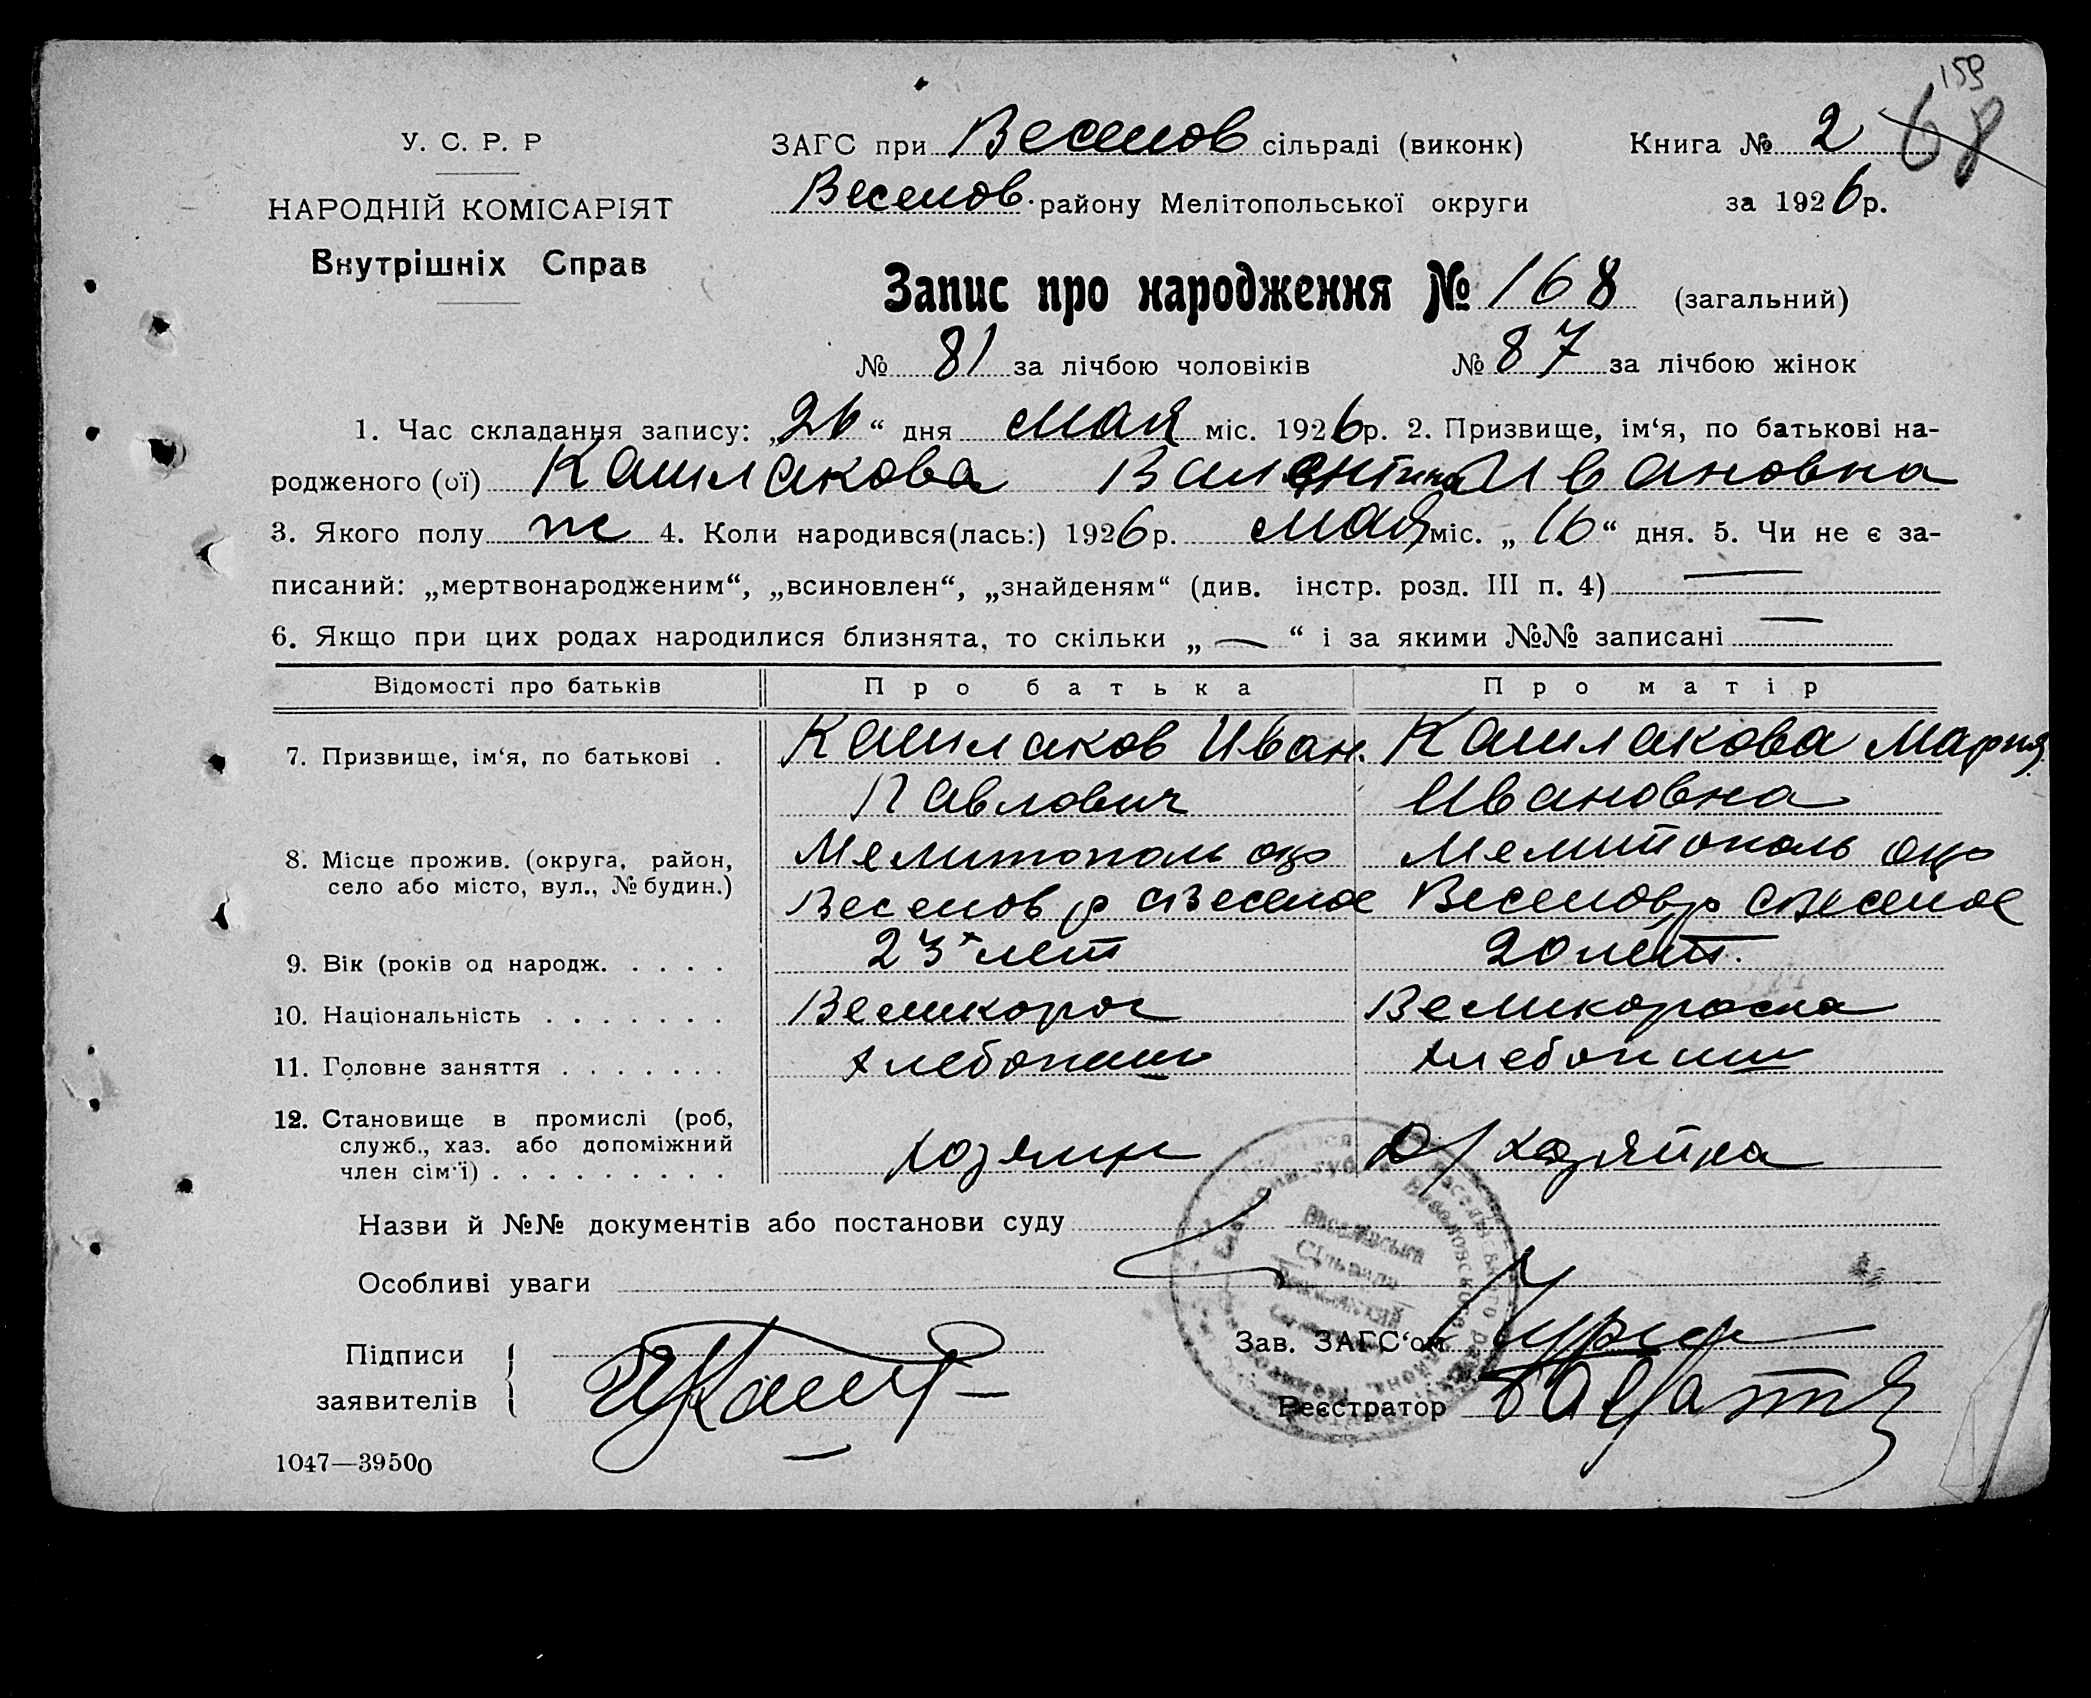 159
У. С. Р. Р
ЗАГС при Веселов сільраді (виконк)
Книга № 2 68
НАРОДНІЙ КОМІСАРІЯТ
Веселов. району Мелітопольської округи
за 1926 р.
Внутрішніх Справ
Запис про народження № 168 (загальний)
№ 81 за лічбою чоловіків № 87 за лічбою жінок
1. Час складання запису: „26“ дня мая міс. 1926 р. 2. Призвище, ім‘я, по батькові на-
родженого (ої) Кашлакова Валентина Ивановна
3. Якого полу ж 4. Коли народився(лась:) 1926 р. мая міс. „16“ дня. 5. Чи не є за-
писаний: „мертвонародженим“, „всиновлен“, „знайденям“ (див. інстр. розд. III п. 4) —
6. Якщо при цих родах народилися близнята, то скільки „—“ і за якими №№ записані —
Відомості про батьків Про батька Про матір
7. Призвище, ім‘я, по батькові . Кашлаков Иван. Кашлакова Мария
Павлович Ивановна
8. Місце прожив. (округа, район, Мелитополь окр Мелитополь окр
село або місто, вул., № будин.) Веселов р с Веселое Веселов р с Веселое
9. Вік (років од народж. . . . . 23 лет 20 лет.
10. Національність . . . . . . . Великорос Великороска
11. Головне заняття . . . . . . . хлебопаш хлебопаш
12. Становище в промислі (роб,
служб., хаз. або допоміжний хозяин д/хозяйка
член сім‘ї) . . . . . . . . .
Назви й №№ документів або постанови суду
Особливі уваги
Підписи
заявителів
Зав. ЗАГС‘ом
Реєстратор
Веселівська
Сільрада
1047—39500